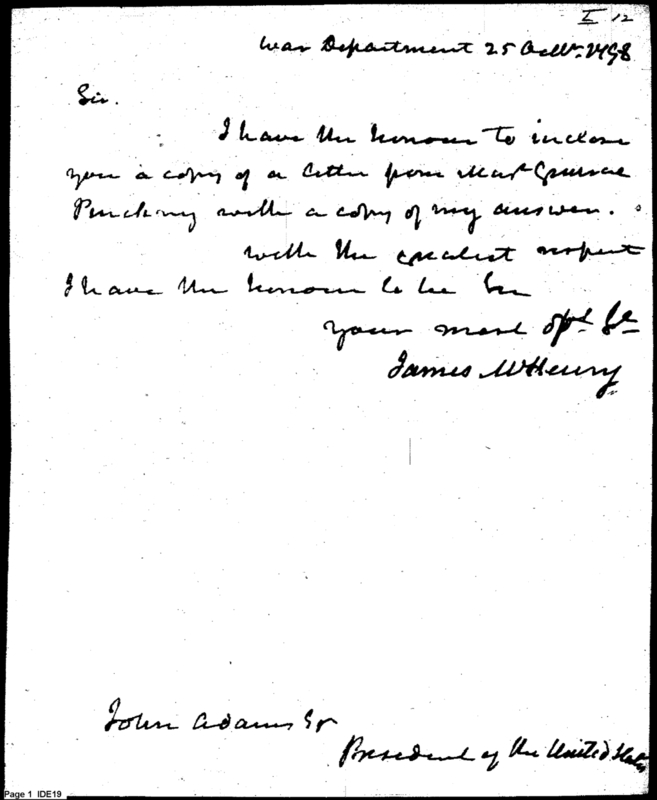 I 12
War Department 25 Octbr. 1798
Sir.
I have the honour to inclose
you a copy of a letter from Majr General
Pinckney with a copy of my answer.
with the greatest respect
I have the honour to be Sir
your most obt. St.
James McHenry
John Adams Esqr
President of the United States
Page 1 IDE19